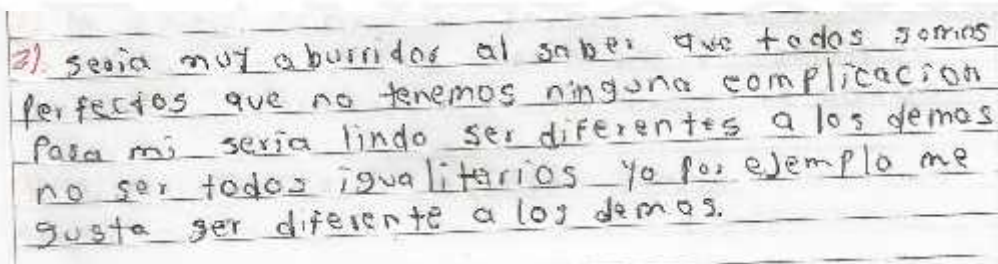 2). seria muy aburridos al saber que todos somos
perfectos que no tenemos ninguna complicacion
Para mi seria lindo ser diferentes a los demas
no ser todos igualitarios yo por ejemplo me
gusta ser diferente a los demas.